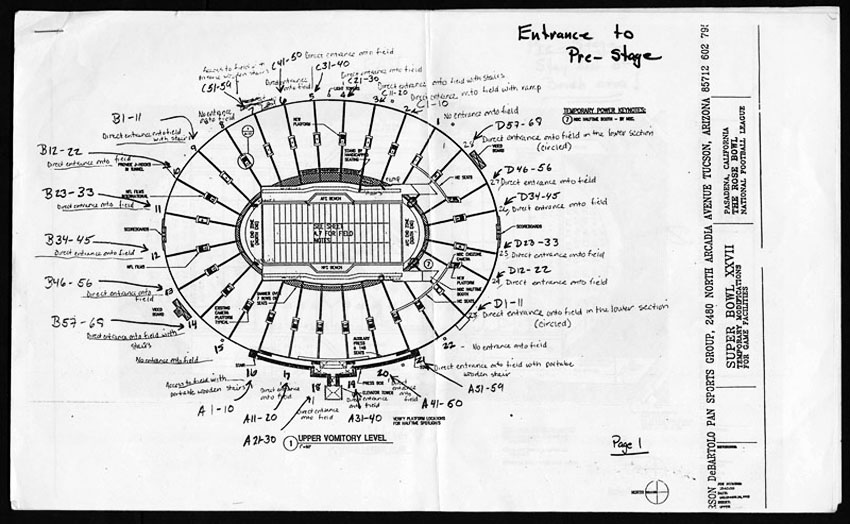 Entrance to
Pre-Stage
C41-50 Direct entrance onto field
C31-40
C51-59
C21-30
C11-20
C1-10
Direct entrance onto field with stairs
Direct entrance onto field with ramp
No entrance onto field
B1-11
Direct entrance onto field
with stairs
B12-22
Direct entrance onto field
B23-33
Direct entrance onto field
B34-45
Direct entrance onto field
B46-56
Direct entrance onto
field
B57-69
Direct entrance onto field with
stairs
No entrance onto field
Access to field with
portable wooden stairs
A 1-10
Direct entrance
onto field
A11-20
A21-30
Direct entrance
onto field
A31-40
Direct entrance
onto field
A41-50
A51-59
Direct entrance onto field with portable
wooden stair
No entrance onto field
TEMPORARY POWER KEYNOTES:
7 NBC HALFTIME BOOTH - BY NBC.
D57-68
Direct entrance onto field in the lower section
(circled)
D46-56
27 Direct entrance onto field
D34-45
26 Direct entrance onto field
D23-33
25 Direct entrance onto field
D12-22
24 Direct entrance onto field
D1-11
23 Direct entrance onto field in the lower section
(circled)
NEW
PLATFORM
STAND BY
HANDICAPPED
SEATING
HC SEATS
VIDEO
BOARD
SCOREBOARDS
NFL FILMS
INTERNATIONAL
SCOREBOARD
NFL FILMS
VIDEO
BOARD
AFC BENCH
SEE SHEET
A.P FOR FIELD
NOTES
AFC BENCH
NBC HALFTIME
BOOTH
HC SEATS
EXISTING
CAMERA
PLATFORM
TYPICAL
AUXILIARY
PRESS
STAIR
PRESS BOX
ELEVATOR TOWER
VERIFY PLATFORM LOCATIONS
FOR HALFTIME SPOTLIGHTS
1 UPPER VOMITORY LEVEL
Page 1
NORTH
RSON DeBARTOLO PAN SPORTS GROUP, 2480 NORTH ARCADIA AVENUE TUCSON, ARIZONA 85712 602 795
SUPER BOWL XXVII
TEMPORARY MODIFICATIONS
FOR GAME FACILITIES
PASADENA, CALIFORNIA
THE ROSE BOWL
NATIONAL FOOTBALL LEAGUE